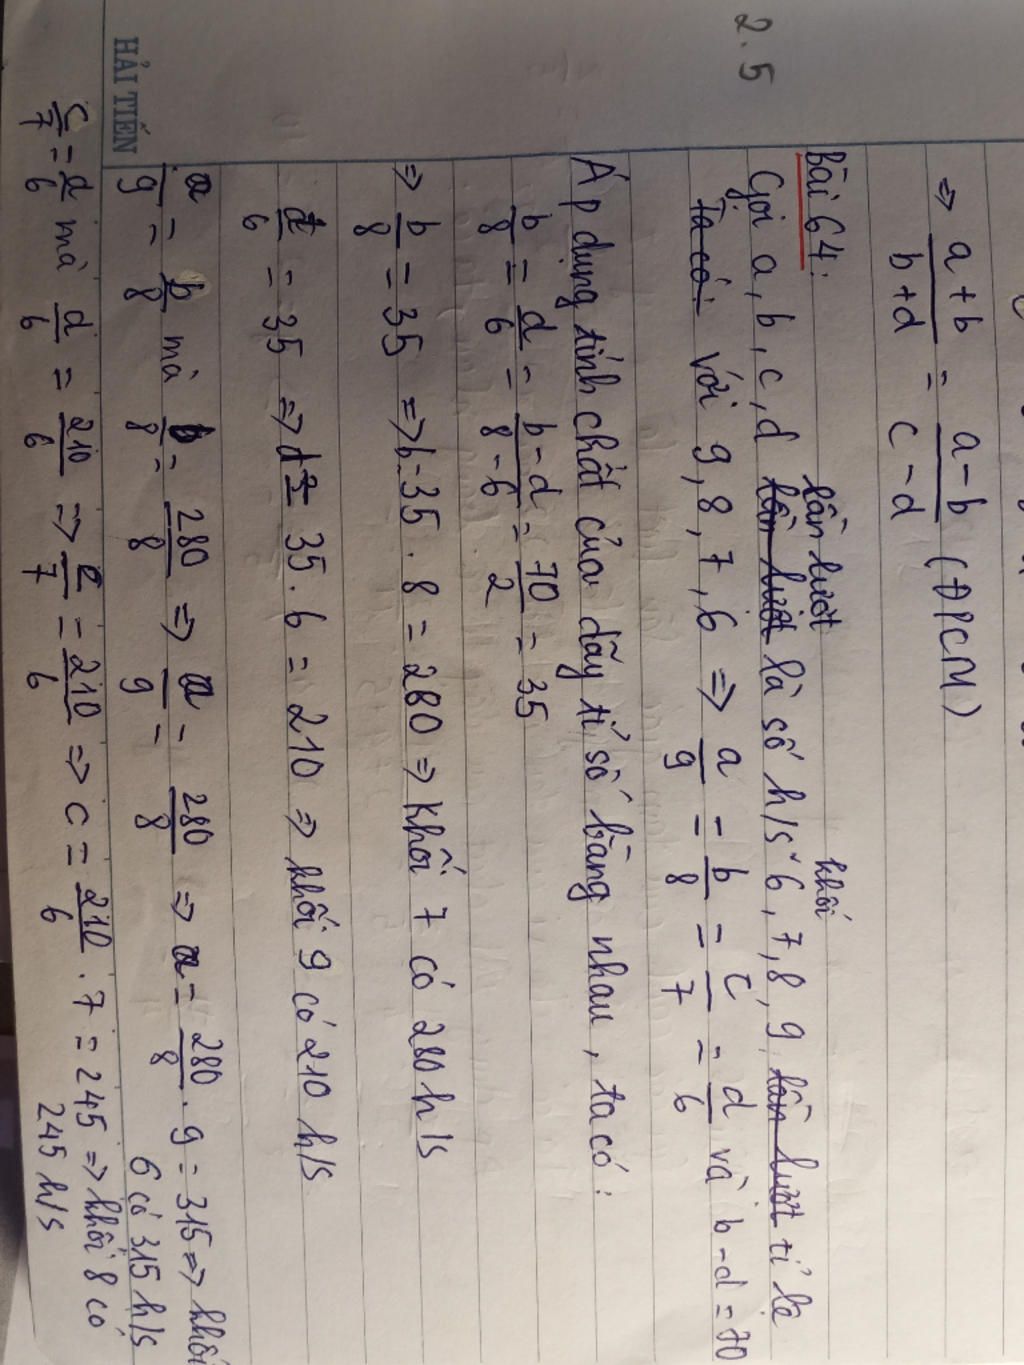 2.5
HẢI TIẾN
=> a+b / b+d = a-b / c-d (ĐPCM)
Bài 64:
lần lượt khối
Gọi a, b, c, d lần lượt là số h/s 6, 7, 8, 9 lần lượt tỉ lệ
Ta có: với 9, 8, 7, 6 => a/9 = b/8 = c/7 = d/6 và b-d = 70
Áp dụng tính chất của dãy tỉ số bằng nhau, ta có:
b/8 = d/6 = b-d / 8-6 = 70/2 = 35
=> b/8 = 35 => b = 35 . 8 = 280 => Khối 7 có 280 h/s
d/6 = 35 => d = 35 . 6 = 210 => khối 9 có 210 h/s
a/9 = b/8 mà b/8 = 280/8 => a/9 = 280/8 => a = 280/8 . 9 = 315 => khối
6 có 315 h/s
c/7 = d/6 mà d/6 = 210/6 => c/7 = 210/6 => c = 210/6 . 7 = 245 => khối 8 có
245 h/s